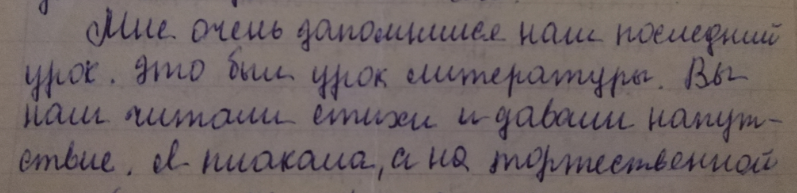 Мне очень запомнился наш последний
урок. Это был урок литературы. Вы
нам читали стихи и давали напут-
ствие. Я плакала, а на торжественной